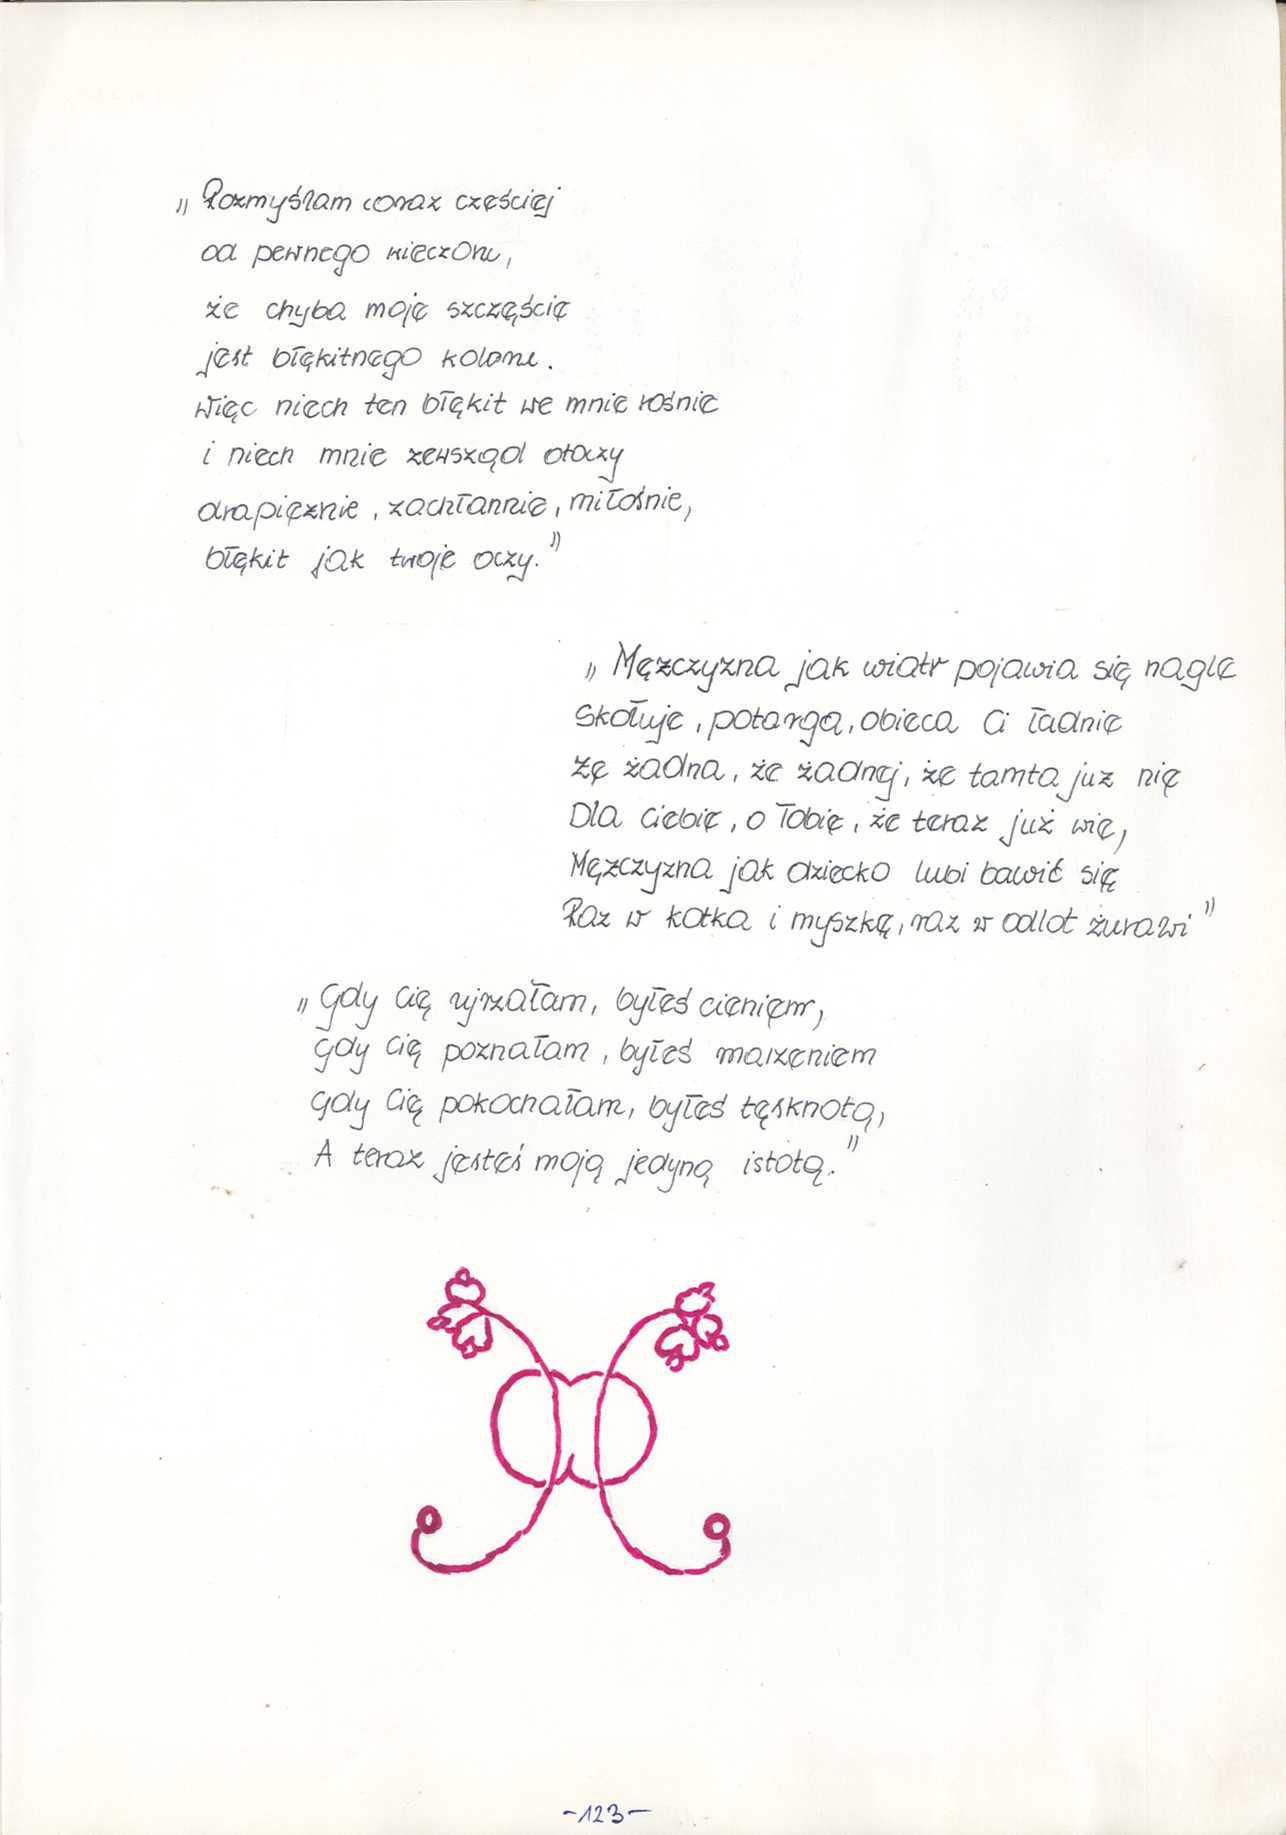 „Rozmyślam coraz częściej
od pewnego wieczoru,
że chyba moje szczęście
jest błękitnego koloru.
Więc niech ten błękit we mnie rośnie
i niech mnie zewsząd otoczy
drapieżnie, zachłannie, miłośnie,
błękit jak twoje oczy."
„Mężczyzna jak wiatr pojawia się nagle
Skołuje, potarga, obieca Ci ładnie
że żadna, że żadnej, że tamta juz nie
Dla Ciebie, o Tobie, że teraz już wie,
Mężczyzna jak dziecko lubi bawić się
Raz w kotka i myszkę, raz w odlot żurawi"
„Gdy Cię ujrzałam, byłeś cieniem,
gdy Cię poznałam, byłeś marzeniem
gdy Cię pokochałam, byłeś tęsknotą,
A teraz jesteś moją jedyną istotą."
-123-